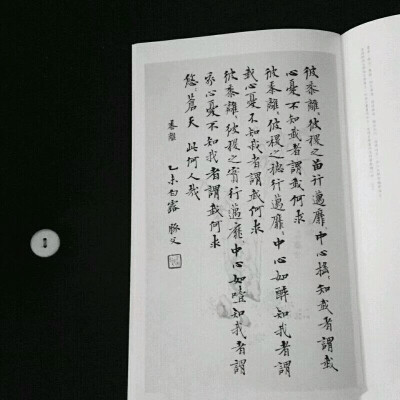 彼黍離々彼稷之苗行邁靡々中心搖々知我者謂我
心憂不知我者謂我何求
彼黍離々彼稷之穗行邁靡々中心如醉知我者謂
我心憂不知我者謂我何求
彼黍離々彼稷之實行邁靡々中心如噎知我者謂
我心憂不知我者謂我何求
悠々蒼天此何人哉
黍離
乙未白露